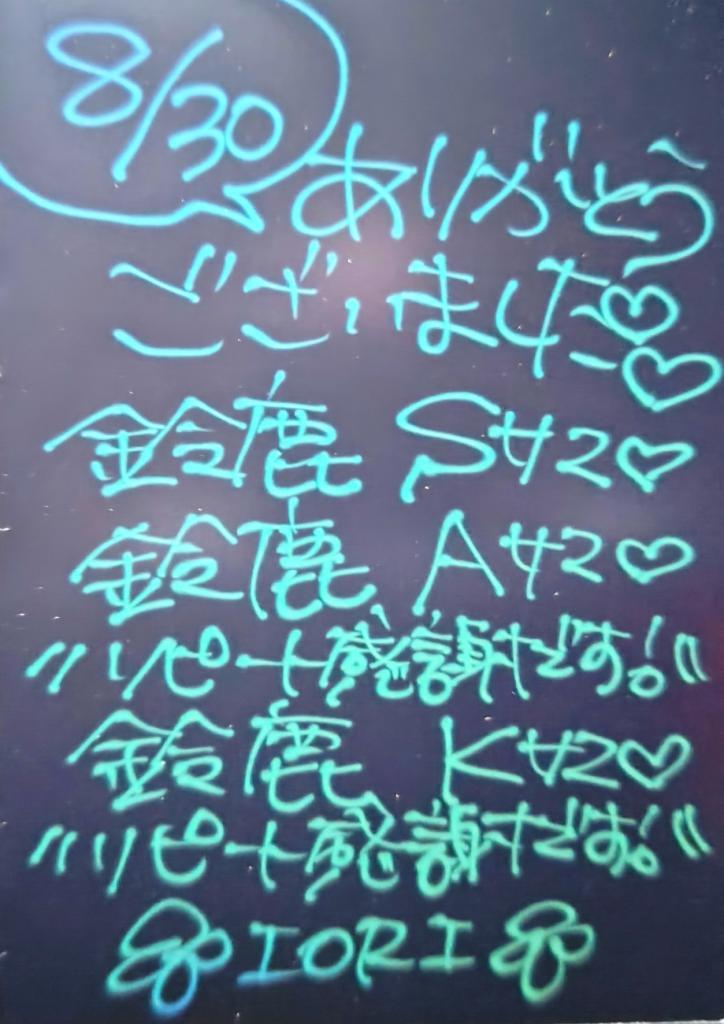 8/30
ありがとう〜
ございました♡♡
鈴鹿 Sサマ♡
鈴鹿 Aサマ♡
〃リピート感謝です!〃
鈴鹿 Kサマ♡
〃リピート感謝です!〃
IORI